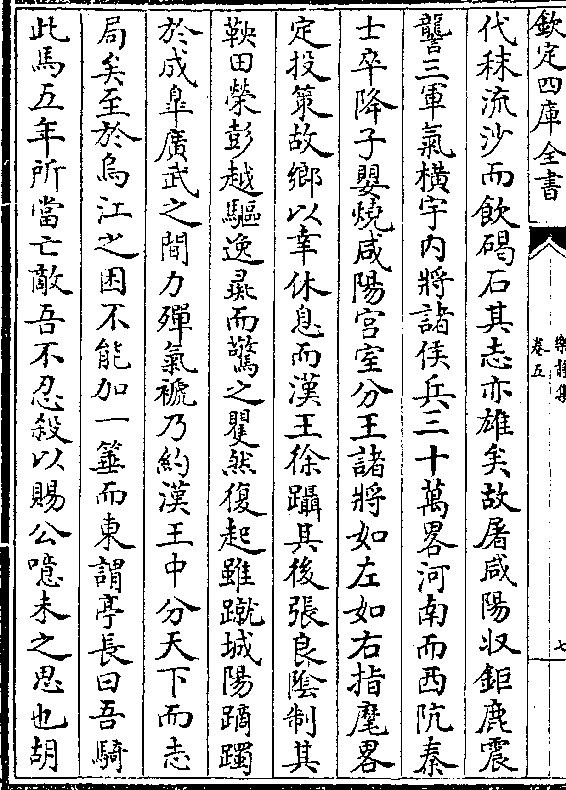 欽定四庫全書
樂靜集
卷五
七
代秣流沙而飲碣石其志亦雄矣故屠咸陽収鉅鹿震
讋三軍氣横宇内將諸侯兵三十萬畧河南而西阬秦
士卒降子嬰燒咸陽宫室分王諸將如左如右指麾畧
定投策故鄉以幸休息而漢王徐躡其後張良陰制其
鞅田榮彭越驅逸而驚之瞿然復起雖蹴城陽蹢躅
於成臯廣武之間力殫氣褫乃約漢王中分天下而志
局矣至於烏江之困不能加一箠而東謂亭長曰吾騎
此馬五年所當亡敵吾不忍殺以賜公噫未之思也胡